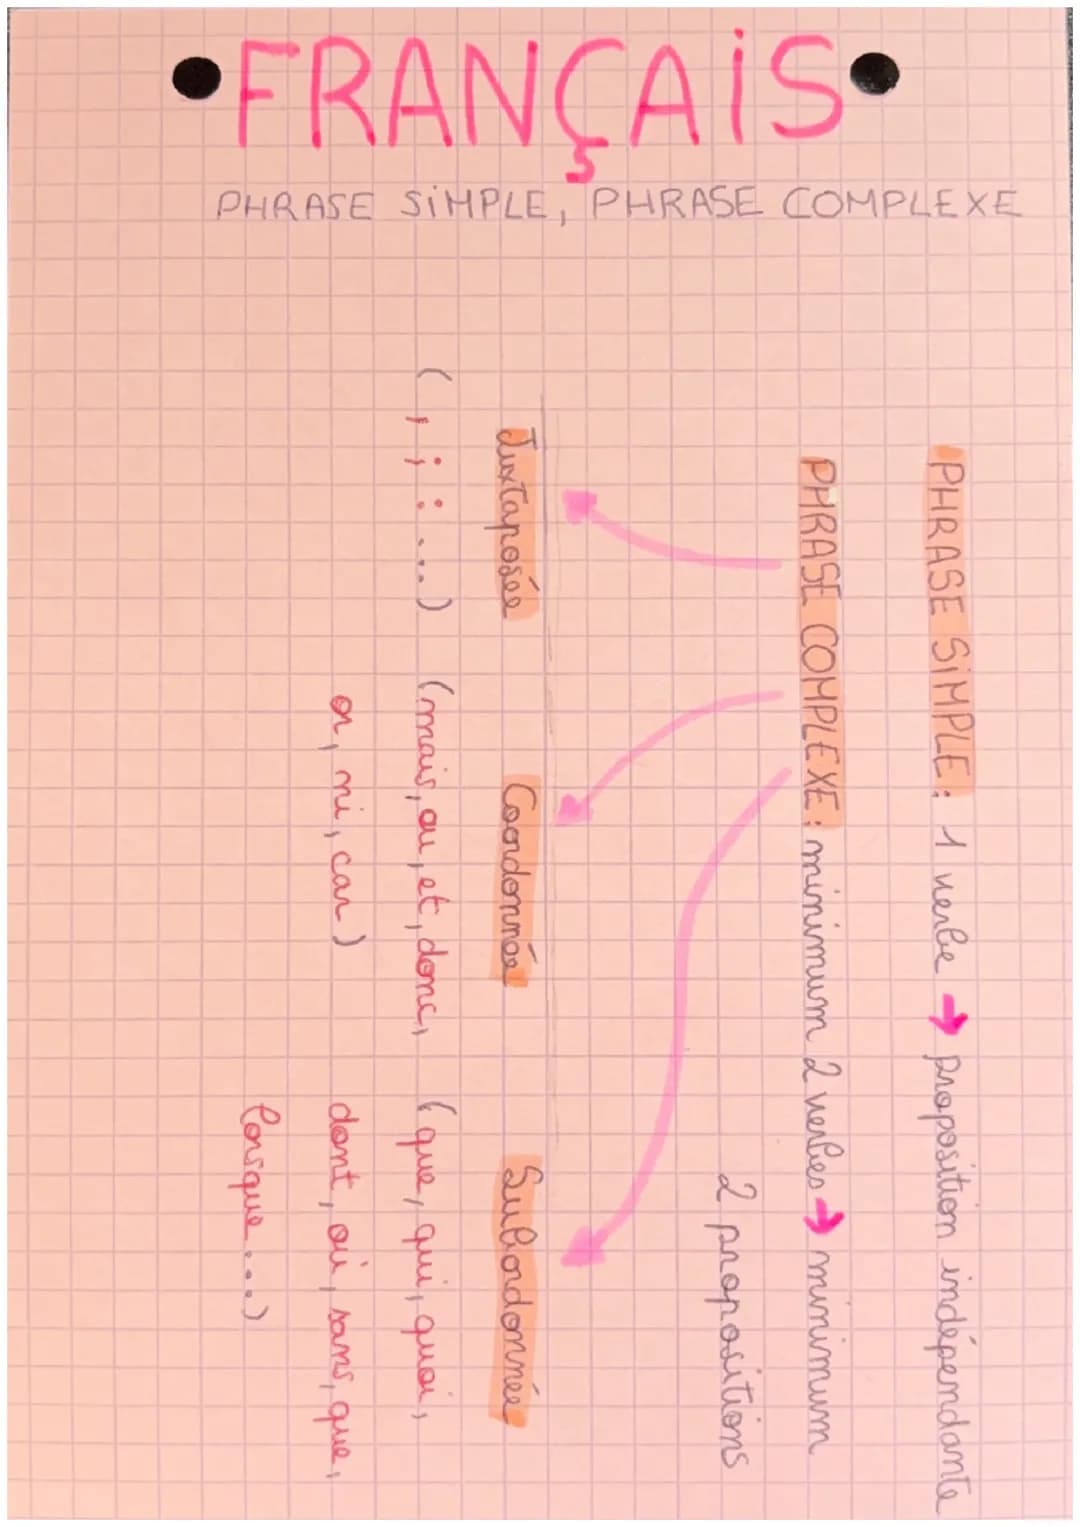 FRANÇAiS
PHRASE SiMPLE, PHRASE COMPLEXE
PHRASE SiMPLE: 1 verbe → proposition indépendante
PHRASE COMPLEXE: minimum 2 verbes → minimum
2 propositions
Juxtaposée
(, ; : ...)
Coordonnée
(mais, ou, et, donc,
or, ni, car)
Subordonnée
(que, qui, quoi,
dont, où, sans, que,
lorsque...)